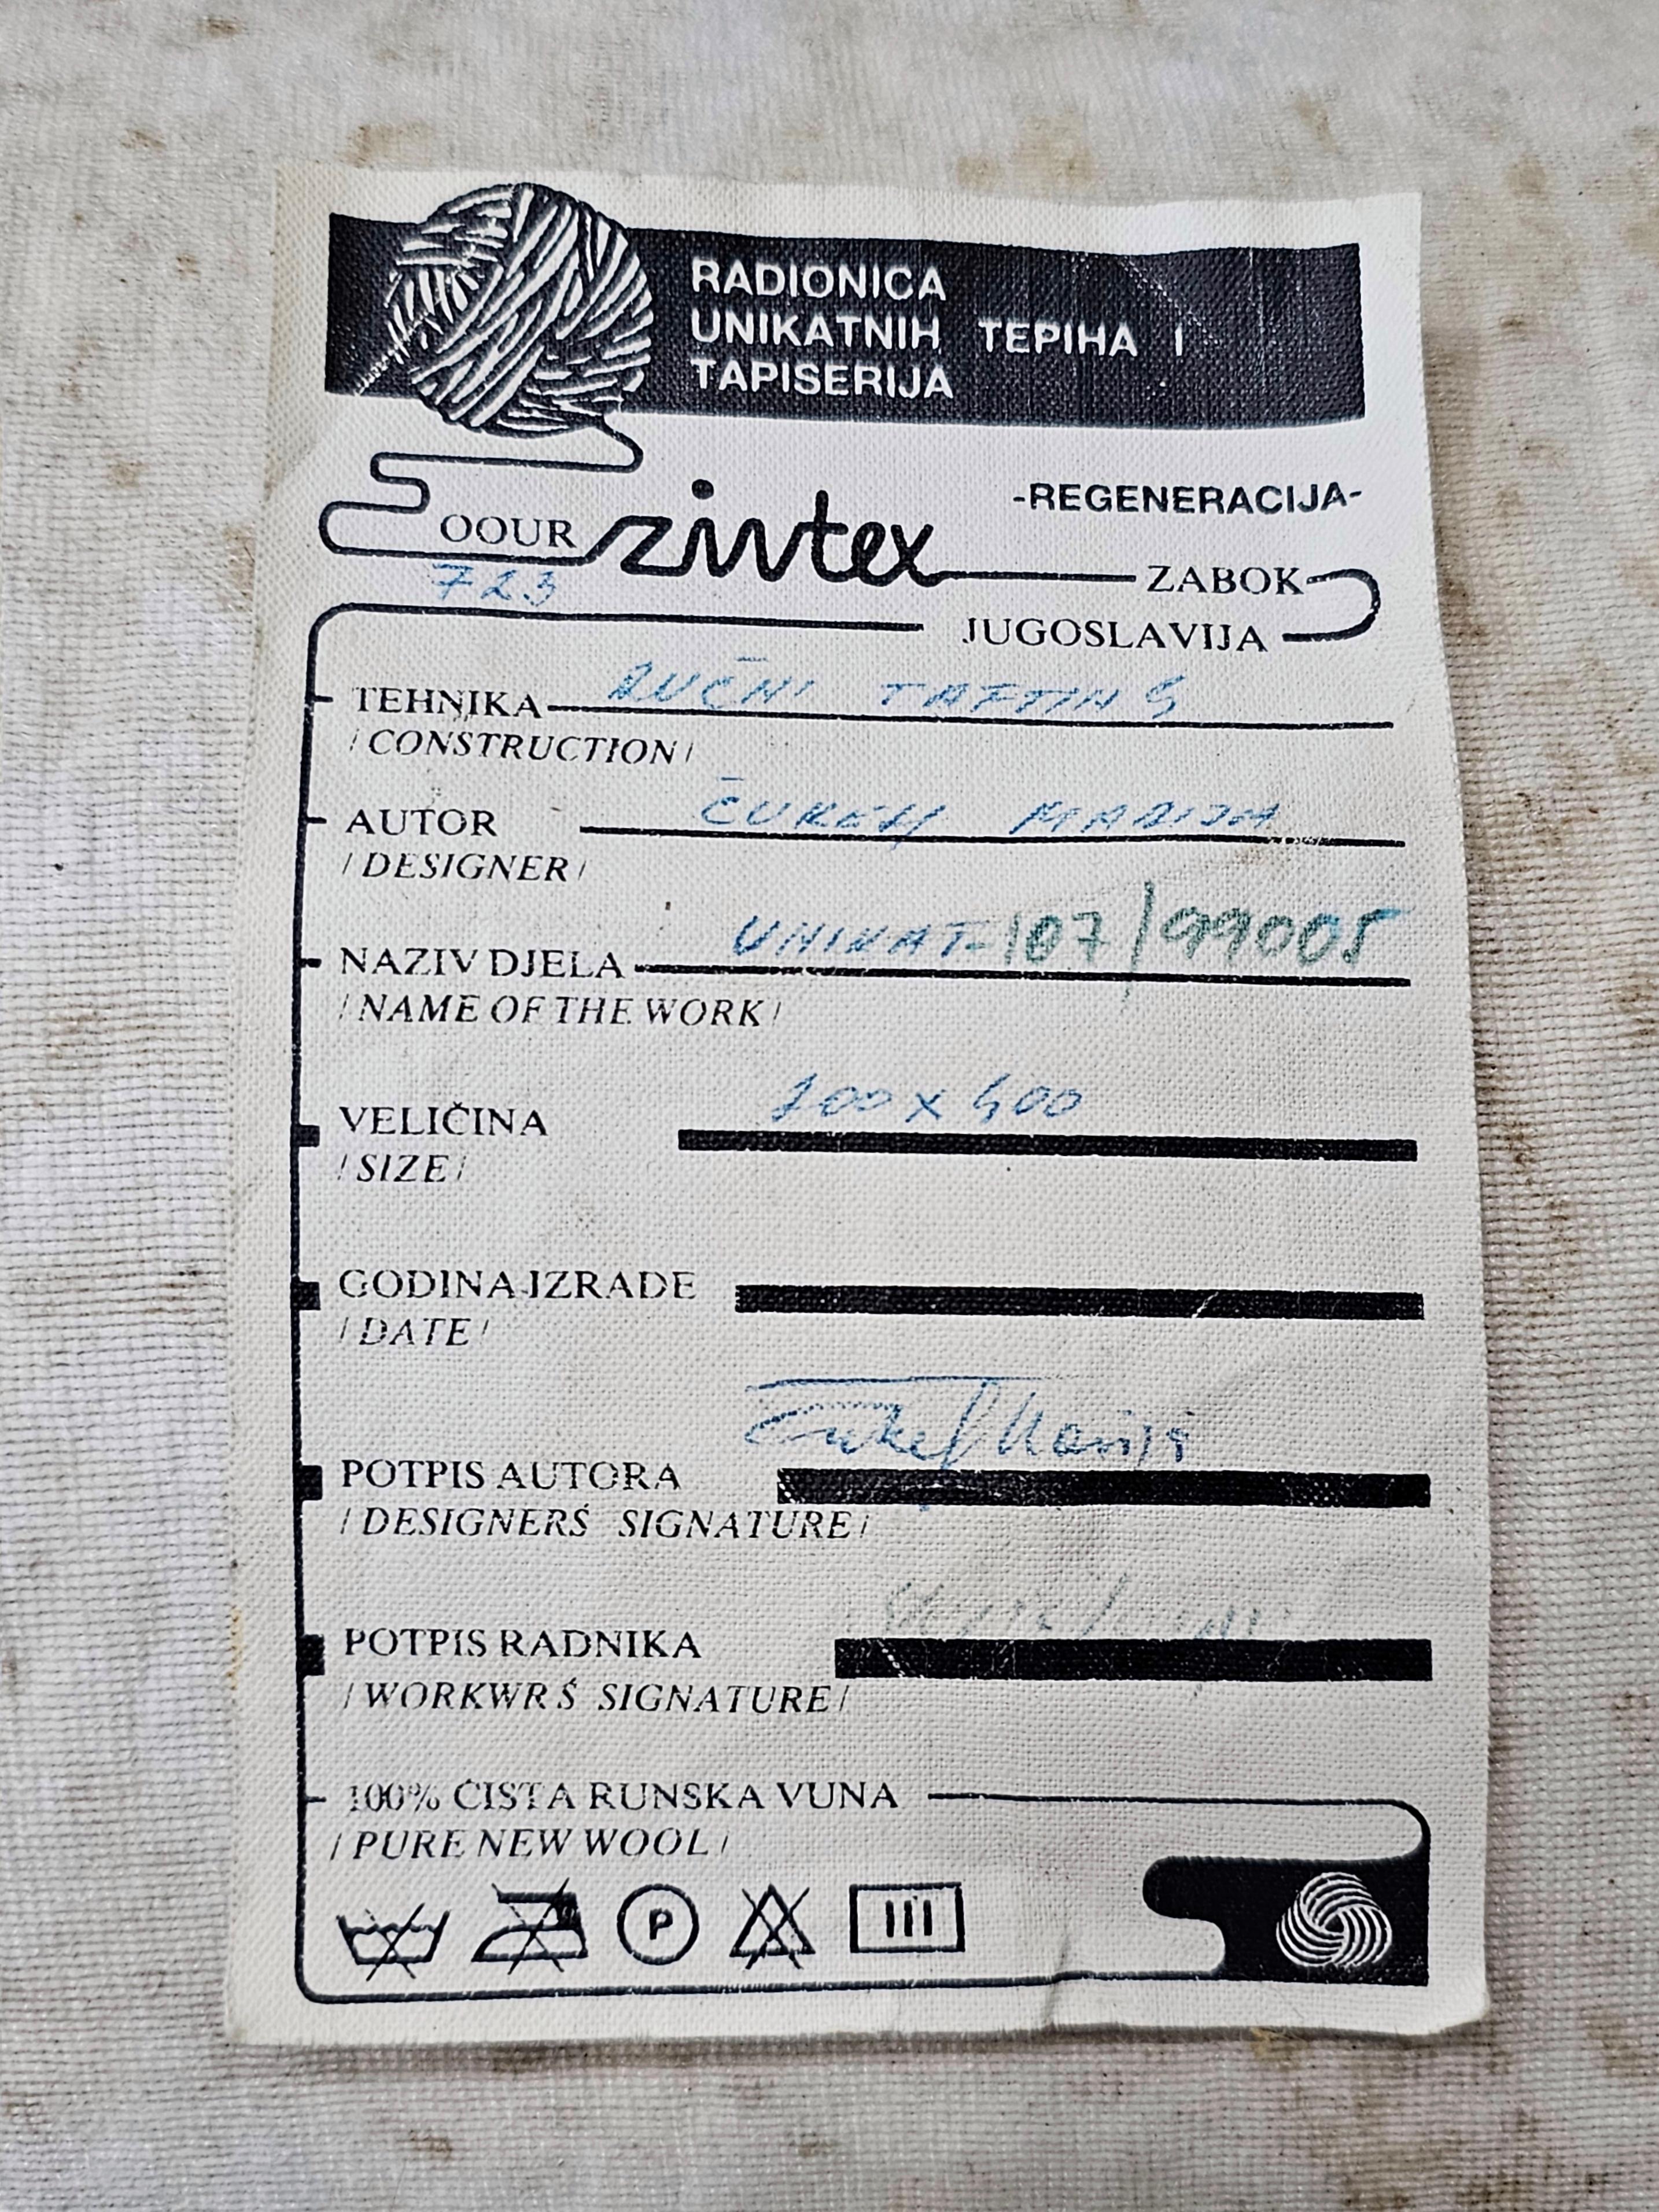 RADIONICA
UNIKATNIH TEPIHA I
TAPISERIJA
-REGENERACIJA-
OOUR zivtex ZABOK
723
JUGOSLAVIJA
TEHNIKA RUČNI TAFTING
/CONSTRUCTION/
AUTOR ČUKELJ MARIJA
/DESIGNER/
NAZIV DJELA UNIKAT-107/99005
/NAME OF THE WORK/
VELIČINA 200 x 400
/SIZE/
GODINA IZRADE
/DATE/
POTPIS AUTORA Čukelj Marija
/DESIGNERŚ SIGNATURE/
POTPIS RADNIKA
/WORKWRŚ SIGNATURE/
100% ČISTA RUNSKA VUNA
/PURE NEW WOOL/
P